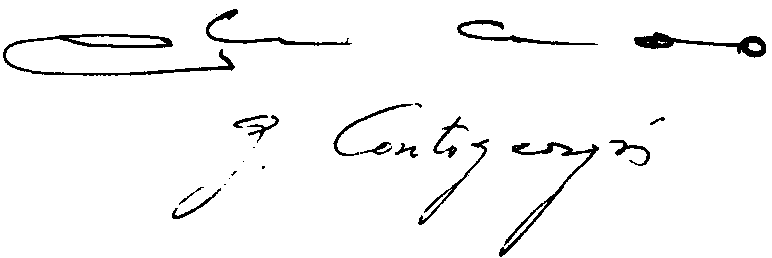 G. Contogeorgis